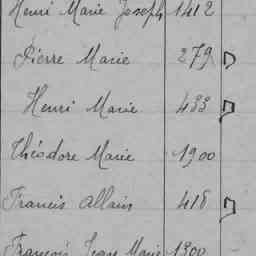 Henri Marie Joseph 1412
Pierre Marie 279
Henri Marie 433
Théodore Marie 1900
Francis Allain 418
François Jean Marie 1300